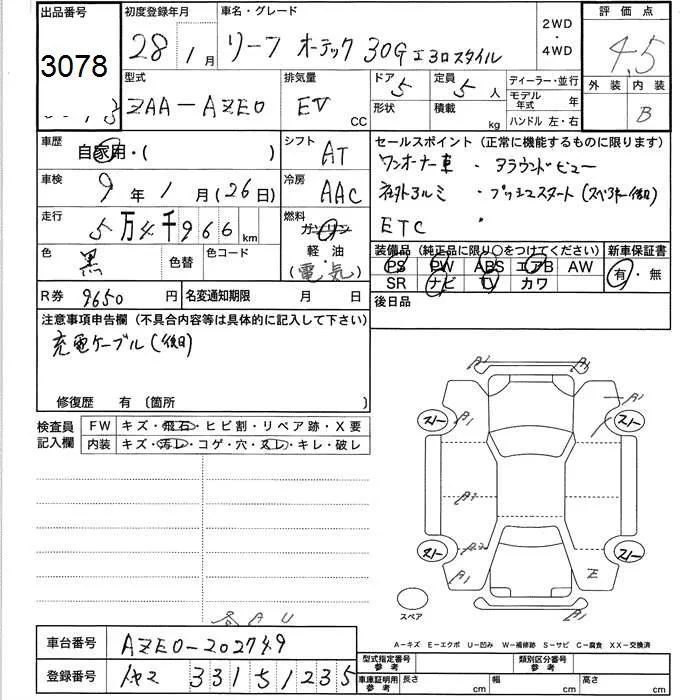 出品番号 初度登録年月 車名・グレード 2WD・4WD 評価点
3078 28 1月 リーフ オーテック 30G エアロスタイル 4.5
型式 排気量 ドア 定員 ディーラー・並行 外装 内装
ZAA-AZE0 EV CC 5 5人 モデル年式 年 B
形状 積載 kg ハンドル 左・右
車歴 シフト セールスポイント(正常に機能するものに限ります)
自家用・( ) AT ワンオーナー車・アラウンドビュー
車検 冷房 社外アルミ・プッシュスタート(スペアキー後日)
9年1月(26日) AAC ETC
走行 燃料
5万4千966km ガソリン
装備品(純正品に限り○をつけてください) 新車保証書
色 色替 色コード 軽油 PS PW ABS エアB AW 有・無
黒 (電気) SR ナビ TV カワ
R券 9650円 名変通知期限 月 日 後日品
注意事項申告欄(不具合内容等は具体的に記入して下さい)
充電ケーブル(後日)
修復歴 有(箇所 )
検査員記入欄 FW キズ・飛石・ヒビ割・リペア跡・X要
内装 キズ・汚レ・コゲ・穴・スレ・キレ・破レ
A1
A1 A1
スリー スリー
A1
A2
A2
スリー スリー
A1 E
スペア
A1
A-キズ E-エクボ U-凹み W-補修跡 S-サビ C-腐食 XX-交換済
車台番号 AZE0-202749
登録番号 331 5 1235
型式指定番号 参考 類別区分番号 参考
車庫証明用 参考 長さ cm 幅 cm 高さ cm